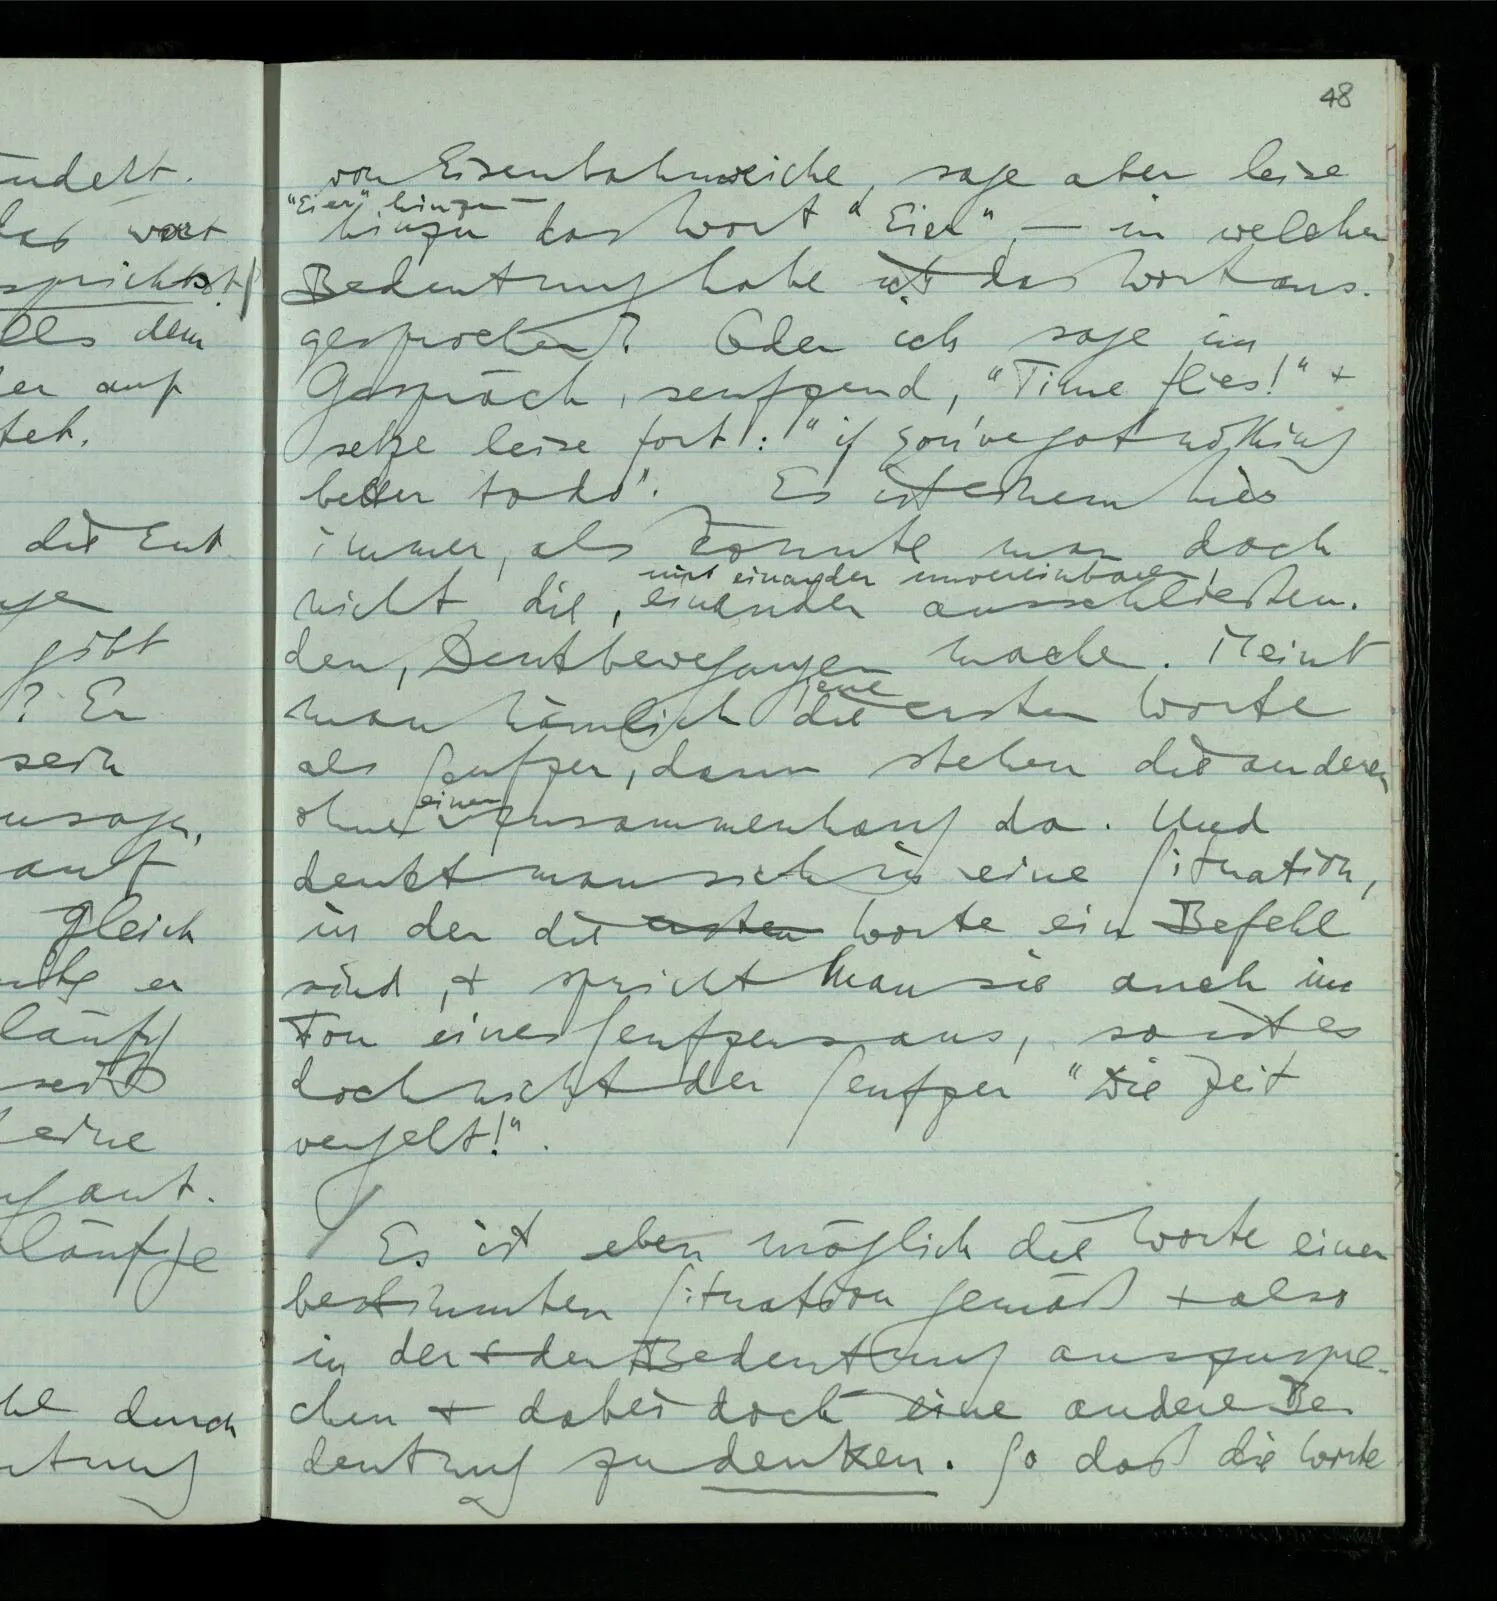 48
ändert.
das wort
sprichst
als dem
er auf
teh.
die Ent
gibt
? Er
sein
ansagen,
gleich
er
läufig
seine
läufige
durch
von Eisenbahnweiche, sage aber leise
"Eier" hinzu —
hinzu das Wort "Eier", — in welcher
Bedeutung habe ich das Wort aus-
gesprochen? Oder ich sage im
Gespräch, seufzend, "Time flies!" +
setze leise fort: "if you've got nothing
better to do". Es ist einem hier
immer, als könnte man doch
mit einander unvereinbaren,
nicht die, einander ausschließen-
den, Denkbewegungen machen. Meint
jene
man nämlich die ersten Worte
als Seufzer, dann stehen die anderen
einen
ohne Zusammenhang da. Und
denkt man sich in eine Situation,
in der die ersten Worte ein Befehl
sind, + spricht man sie auch im
Ton eines Seufzers aus, so ist es
doch nicht der Seufzer "Die Zeit
vergeht!".
Es ist eben möglich die Worte einer
bestimmten Situation gemäß + also
in der + der Bedeutung auszuspre-
chen + dabei doch eine andere Be-
deutung zu denken. So daß die Worte